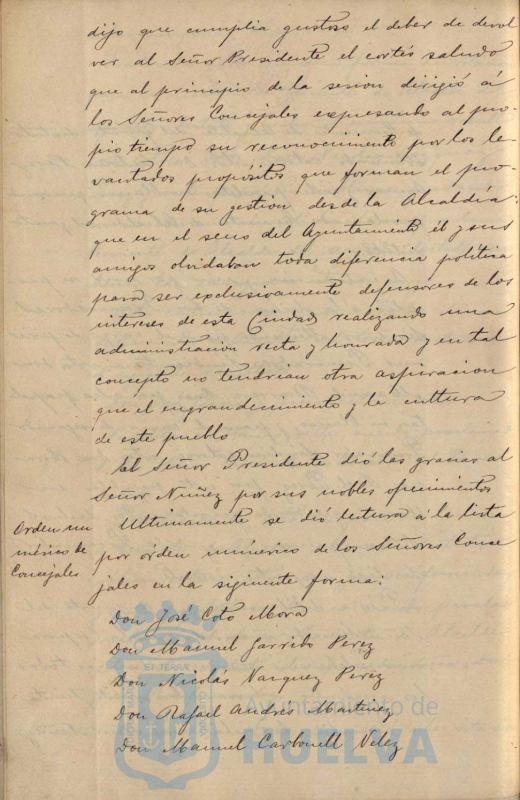 dijo que cumplia gustoso el deber de devol
ver al Señor Presidente el cortés saludo
que al principio de la sesion dirigió á
los Señores Concejales expresando al pro-
pio tiempo su reconocimiento por los le-
vantados propósitos que forman el pro-
grama de su gestion desde la Alcaldía:
que en el seno del Ayuntamiento él y sus
amigos olvidaban toda diferencia politica
para ser exclusivamente defensores de los
intereses de esta Ciudad realizando una
administracion recta y honrada y en tal
concepto no tendrian otra aspiracion
que el engrandecimiento y la cultura
de este pueblo
El Señor Presidente dió las gracias al
Señor Nuñez por sus nobles ofrecimientos
Orden nu
mérico de
Concejales
Ultimamente se dió lectura á la lista
por órden numérico de los Señores Conce
jales en la siguiente forma:
Don José Coto Mora
Don Manuel Garrido Perez
Don Nicolás Vazquez Perez
Don Rafael Andrés Martinez
Don Manuel Carbonell Velez
Ayuntamiento de
HUELVA